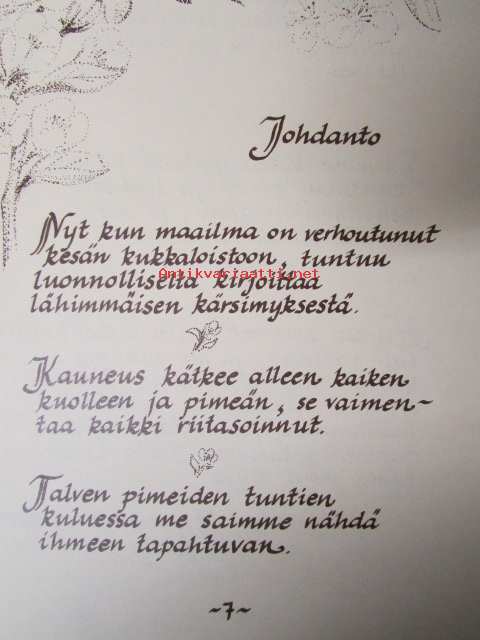 Johdanto
Nyt kun maailma on verhoutunut
kesän kukkaloistoon, tuntuu
luonnolliselta kirjoittaa
Antikvariaatti.net
lähimmäisen kärsimyksestä.
Kauneus kätkee alleen kaiken
kuolleen ja pimeän, se vaimen-
taa kaikki riitasoinnut.
Talven pimeiden tuntien
kuluessa me saimme nähdä
ihmeen tapahtuvan.
~7~